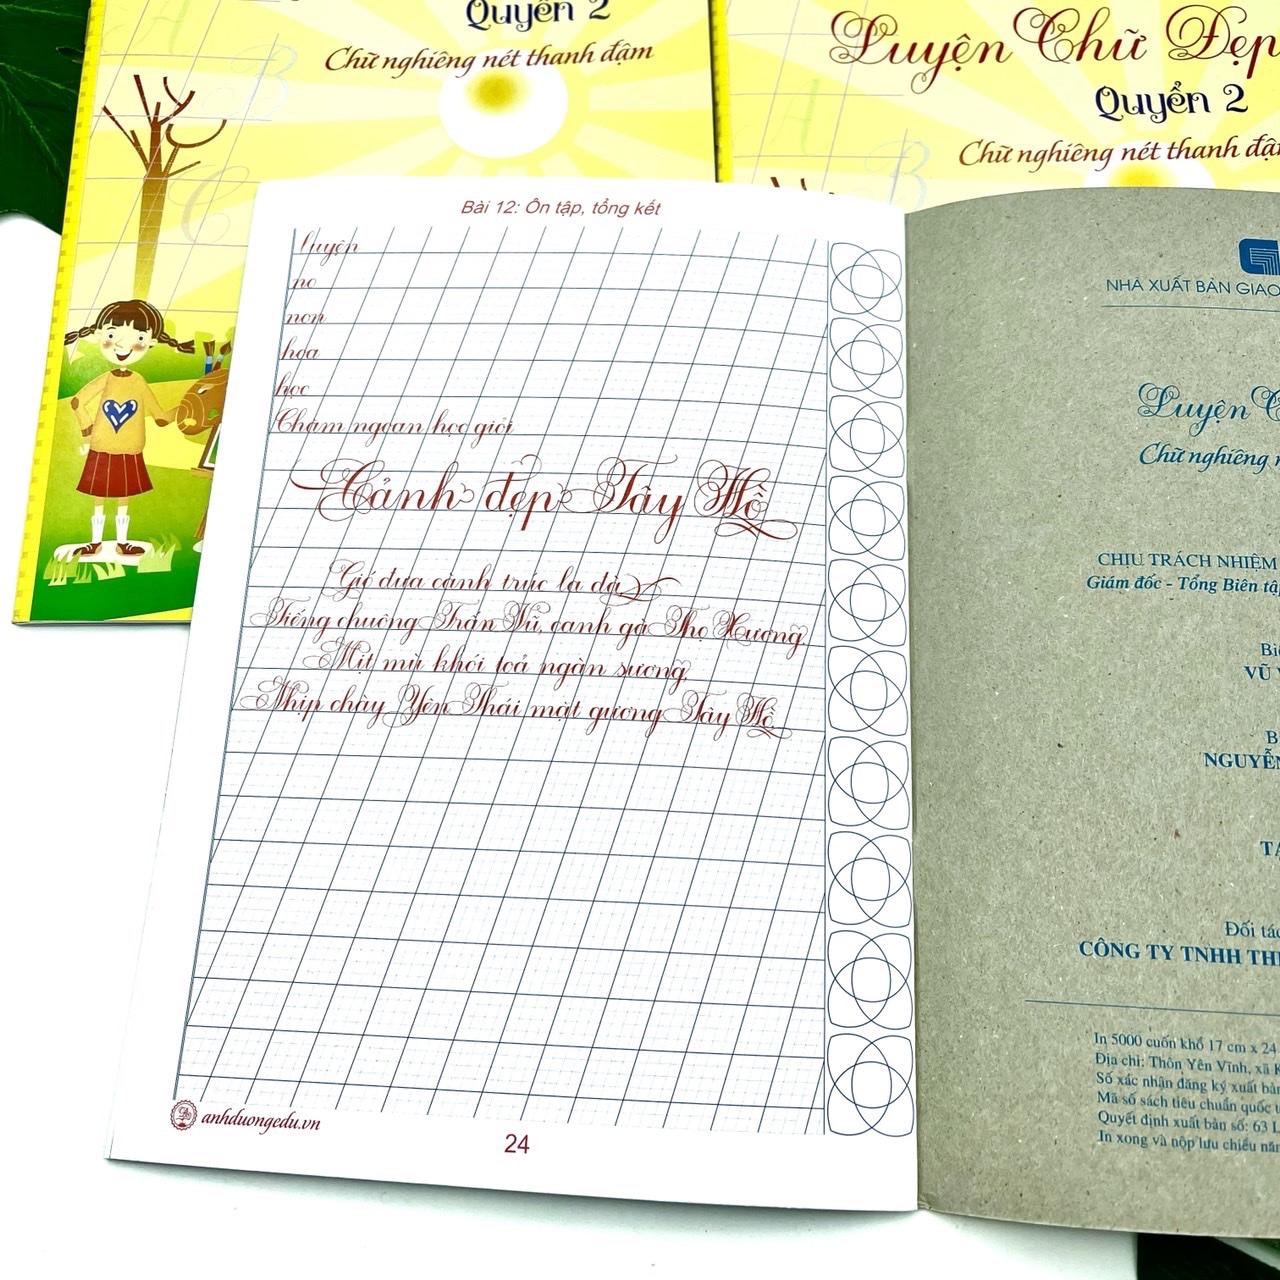 Quyển 2
Chữ nghiêng nét thanh đậm
Luyện Chữ Đẹp
Quyển 2
Chữ nghiêng nét thanh đậm
Bài 12: Ôn tập, tổng kết
luyện
no
non
hoa
học
Chăm ngoan học giỏi
Cảnh đẹp Tây Hồ
Gió đưa cành trúc la đà
Tiếng chuông Trấn Vũ, canh gà Thọ Xương.
Mịt mù khói toả ngàn sương,
Nhịp chày Yên Thái mặt gương Tây Hồ.
anhduongedu.vn
24
NHÀ XUẤT BẢN GIÁO
Luyện
Chữ nghiêng
CHỊU TRÁCH NHIỆM
Giám đốc - Tổng Biên tập
VŨ
NGUYỄN
Đối tác
CÔNG TY TNHH
In 5000 cuốn khổ 17 cm x 24
Địa chỉ: Thôn Yên Vĩnh, xã
Số xác nhận đăng ký xuất bản
Mã số sách tiêu chuẩn quốc
Quyết định xuất bản số: 63
In xong và nộp lưu chiểu năm